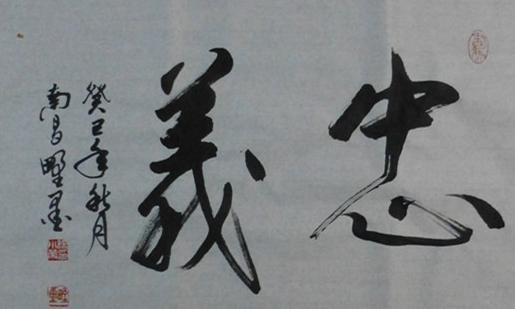 忠義
癸巳年秋月
南昌墅墨